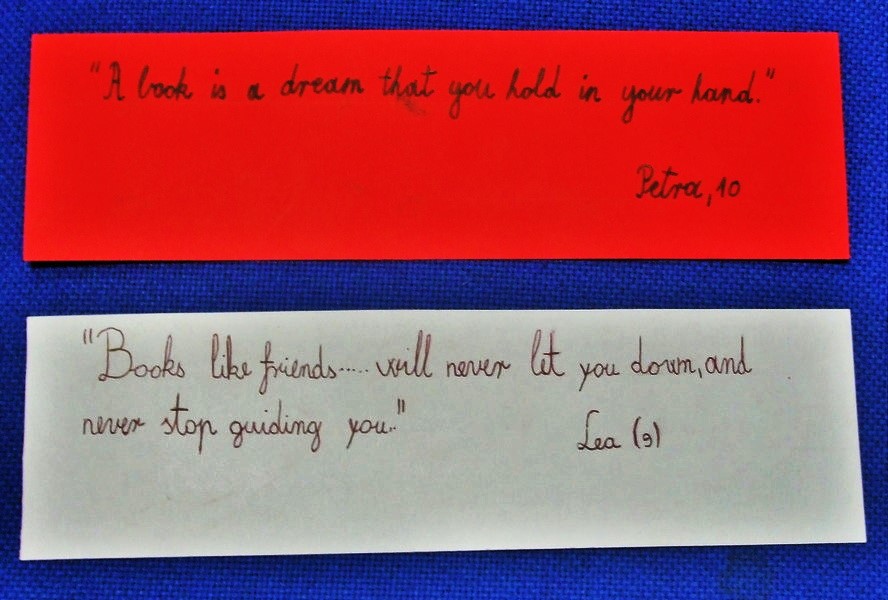 "A book is a dream that you hold in your hand."
Petra, 10
"Books like friends..... will never let you down, and
never stop guiding you."
Lea (9)